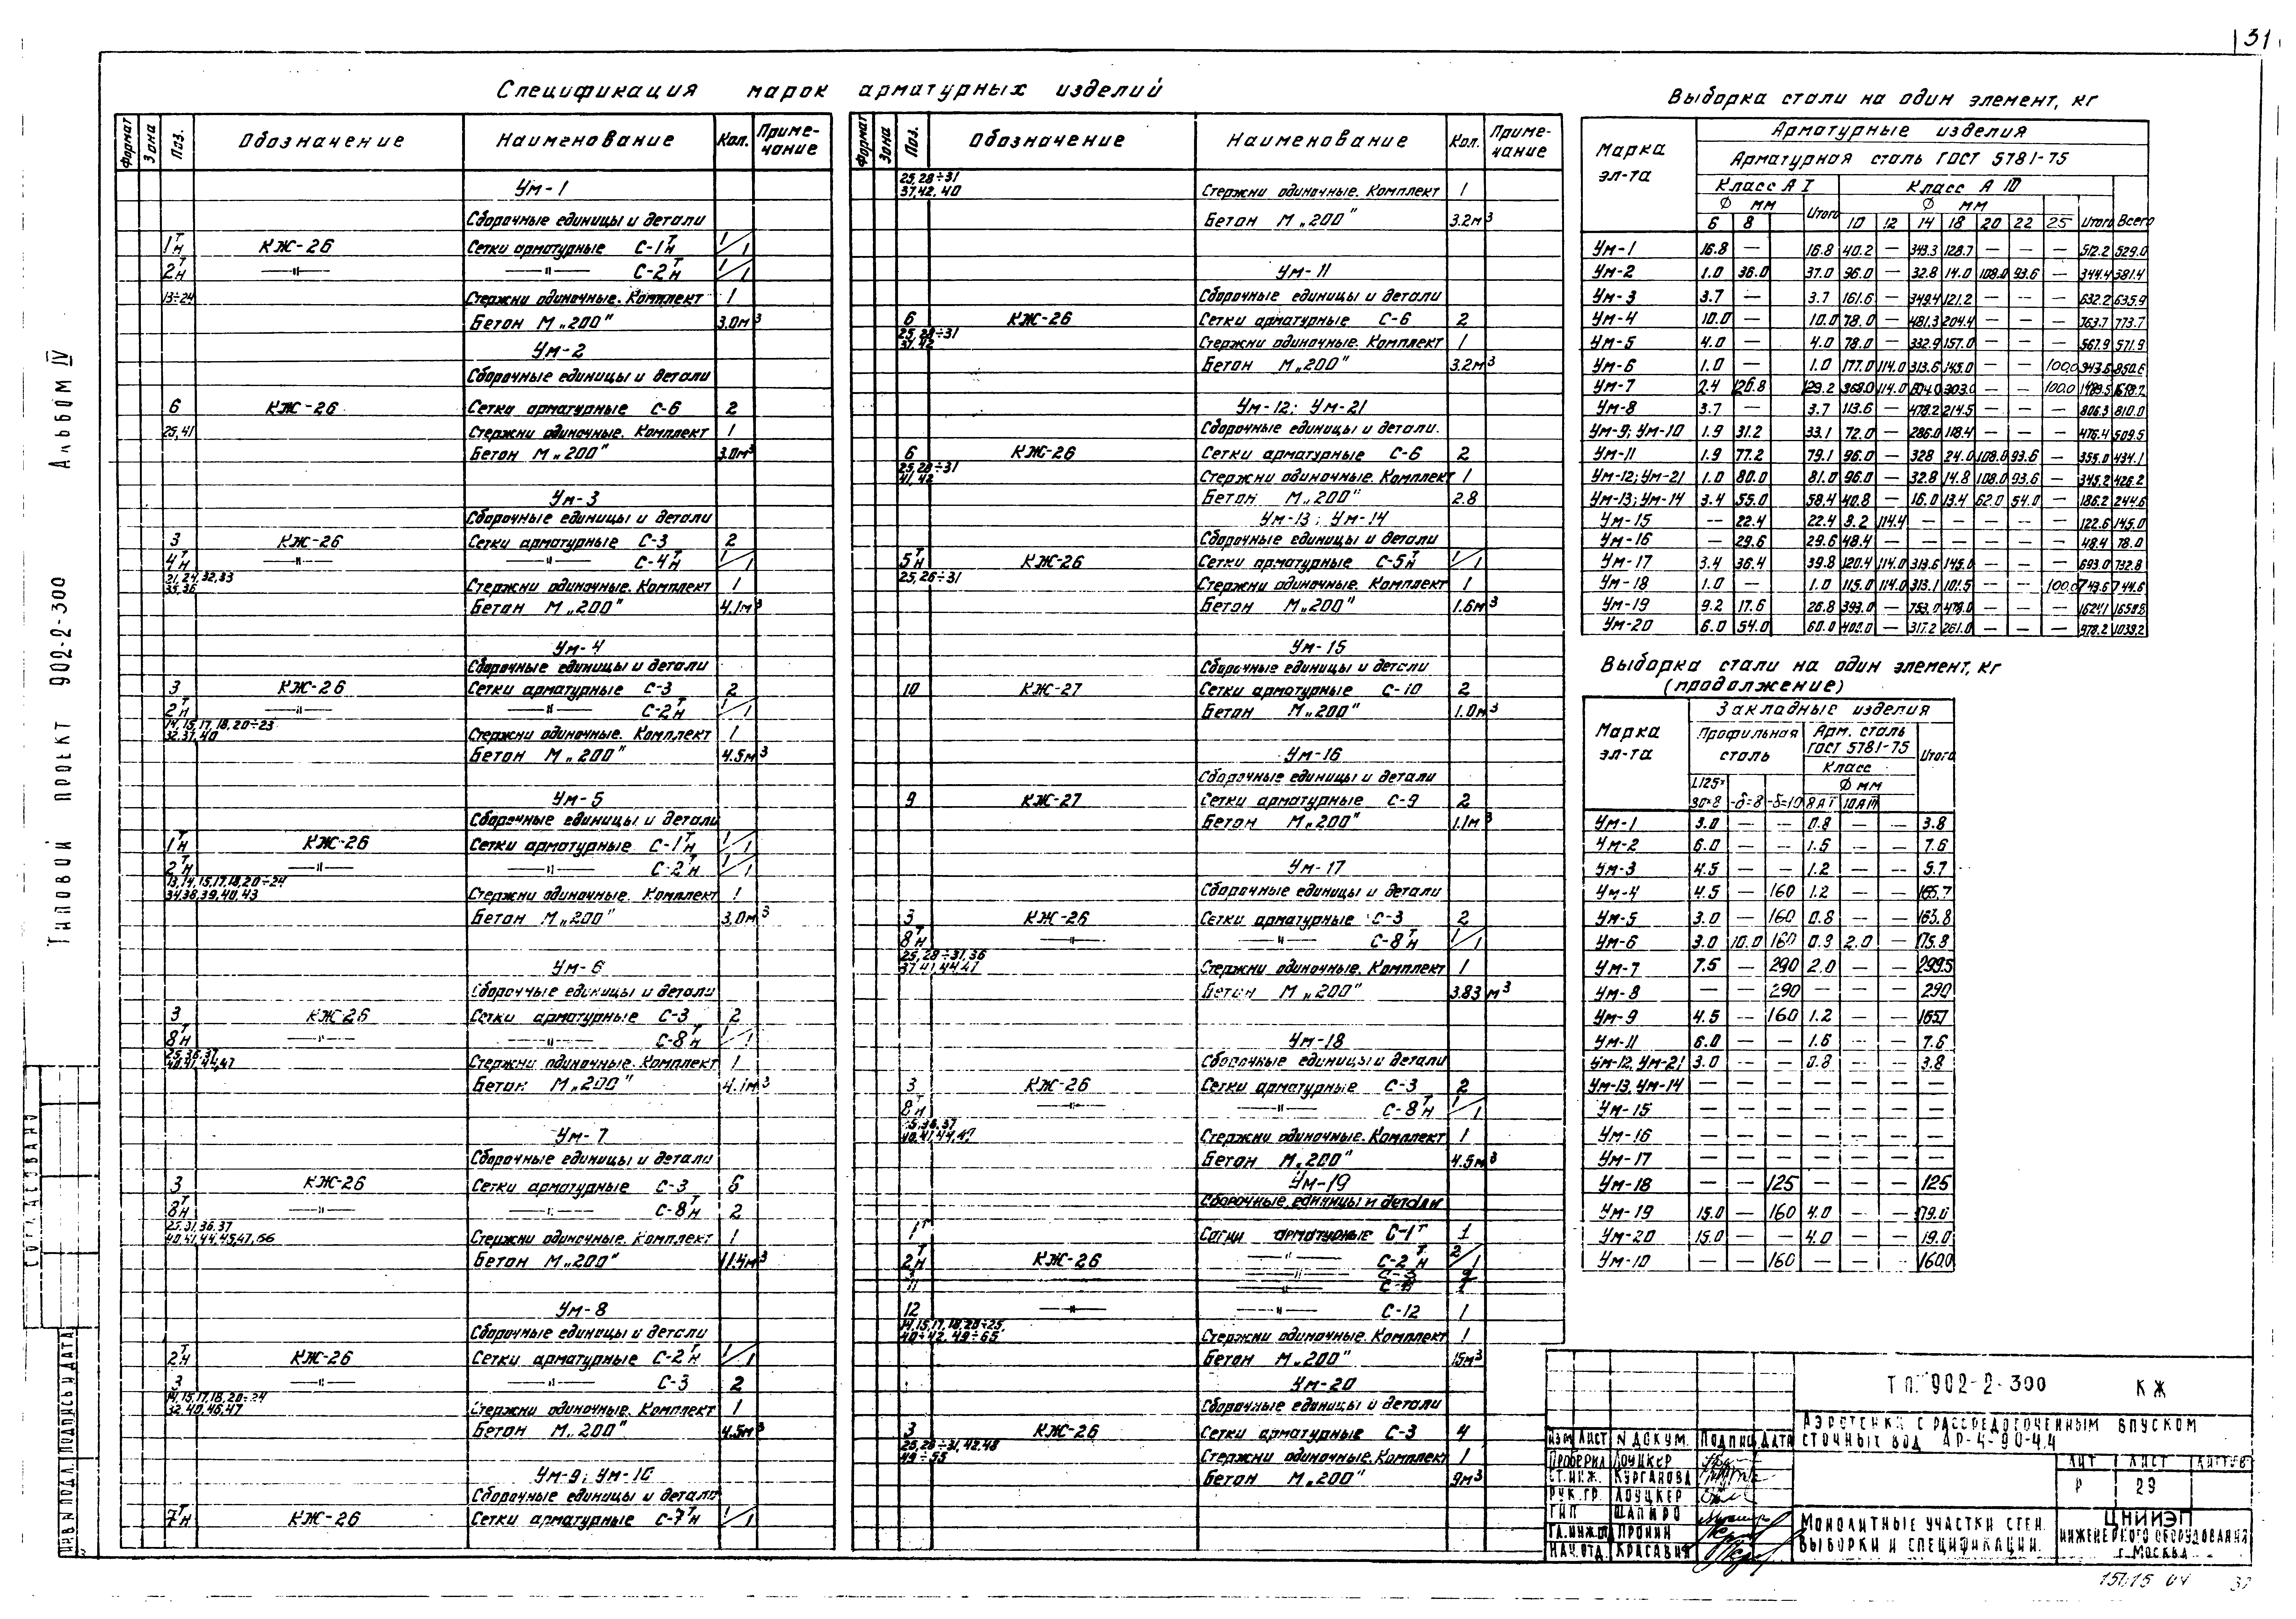 31
Спецификация марок арматурных изделий
Формат Зона Поз. Обозначение Наименование Кол. Примечание
Ум-1
Сборочные единицы и детали
1 т н КЖ-26 Сетки арматурные С-1 т н 1/1
2 т н —"— —"— С-2 т н 1/1
13÷24 Стержни одиночные. Комплект 1
Бетон М „200" 3.0м³
Ум-2
Сборочные единицы и детали
6 КЖ-26 Сетки арматурные С-6 2
25,41 Стержни одиночные. Комплект 1
Бетон М „200" 3.0м³
Ум-3
Сборочные единицы и детали
3 КЖ-26 Сетки арматурные С-3 2
4 т н —"— —"— С-4 т н 1/1
21,24,32,33
35,36 Стержни одиночные. Комплект 1
Бетон М „200" 4.1м³
Ум-4
Сборочные единицы и детали
3 КЖ-26 Сетки арматурные С-3 2
2 т н —"— —"— С-2 т н 1/1
14,15,17,18,20÷23
32,37,40 Стержни одиночные. Комплект 1
Бетон М „200" 4.5м³
Ум-5
Сборочные единицы и детали
1 т н КЖ-26 Сетки арматурные С-1 т н 1/1
2 т н —"— —"— С-2 т н 1/1
13,14,15,17,18,20÷24
34,38,39,40,43 Стержни одиночные. Комплект 1
Бетон М „200" 3.0м³
Ум-6
Сборочные единицы и детали
3 КЖ-26 Сетки арматурные С-3 2
8 т н —"— —"— С-8 т н 1/1
25,36,37
40,41,44,47 Стержни одиночные. Комплект 1
Бетон М „200" 4.1м³
Ум-7
Сборочные единицы и детали
3 КЖ-26 Сетки арматурные С-3 6
8 т н —"— —"— С-8 т н 2
25,31,36,37
40,41,44,45,47,66 Стержни одиночные. Комплект 1
Бетон М „200" 11.4м³
Ум-8
Сборочные единицы и детали
2 т н КЖ-26 Сетки арматурные С-2 т н 1/1
3 —"— —"— С-3 2
14,15,17,18,20÷24
32,40,46,47 Стержни одиночные. Комплект 1
Бетон М „200" 4.5м³
Ум-9; Ум-10
Сборочные единицы и детали
7 т н КЖ-26 Сетки арматурные С-7 т н 1/1
Формат Зона Поз. Обозначение Наименование Кол. Примечание
25,28÷31
37,42,40 Стержни одиночные. Комплект 1
Бетон М „200" 3.2м³
Ум-11
Сборочные единицы и детали
6 КЖ-26 Сетки арматурные С-6 2
25,28÷31
37,42 Стержни одиночные. Комплект 1
Бетон М „200" 3.2м³
Ум-12; Ум-21
Сборочные единицы и детали.
6 КЖ-26 Сетки арматурные С-6 2
25,28÷31
41,42 Стержни одиночные. Комплект 1
Бетон М „200" 2.8
Ум-13; Ум-14
Сборочные единицы и детали
5 т н КЖ-26 Сетки арматурные С-5 т н 1/1
25,26÷31 Стержни одиночные. Комплект 1
Бетон М „200" 1.6м³
Ум-15
Сборочные единицы и детали
10 КЖ-27 Сетки арматурные С-10 2
Бетон М „200" 1.0м³
Ум-16
Сборочные единицы и детали
9 КЖ-27 Сетки арматурные С-9 2
Бетон М „200" 1.1м³
Ум-17
Сборочные единицы и детали
3 КЖ-26 Сетки арматурные С-3 2
8 т н —"— —"— С-8 т н 1/1
25,28÷31,36
37,41,44,47 Стержни одиночные. Комплект 1
Бетон М „200" 3.83 м³
Ум-18
Сборочные единицы и детали
3 КЖ-26 Сетки арматурные С-3 2
8 т н —"— —"— С-8 т н 1/1
25,36,37
40,41,44,47 Стержни одиночные. Комплект 1
Бетон М „200" 4.5м³
Ум-19
Сборочные единицы и детали
1 т Сетки арматурные С-1 т 1
2 т н КЖ-26 —"— С-2 т н 2/1
—"— С-3
11 —"— 1
12 —"— —"— С-12 1
14,15,17,18,20÷25,
40÷42,49÷65 Стержни одиночные. Комплект 1
Бетон М „200" 15м³
Ум-20
Сборочные единицы и детали
3 КЖ-26 Сетки арматурные С-3 4
25,28÷31,42,48
49÷55 Стержни одиночные. Комплект 1
Бетон М „200" 9м³
Выборка стали на один элемент, кг
Марка эл-та Арматурные изделия
Арматурная сталь ГОСТ 5781-75
Класс А I Класс А III
Ф мм Итого Ф мм Итого Всего
6 8 10 12 14 18 20 22 25
Ум-1 16.8 — 16.8 40.2 — 343.3 128.7 — — — 512.2 529.0
Ум-2 1.0 36.0 37.0 96.0 — 32.8 14.0 108.0 93.6 — 344.4 381.4
Ум-3 3.7 — 3.7 161.6 — 349.4 121.2 — — — 632.2 635.9
Ум-4 10.0 — 10.0 78.0 — 481.3 204.4 — — — 763.7 773.7
Ум-5 4.0 — 4.0 78.0 — 332.9 157.0 — — — 567.9 571.9
Ум-6 1.0 — 1.0 177.0 114.0 313.6 145.0 — — 100.0
Ум-7 2.4 126.8 129.2 368.0 114.0 604.0 303.0 — — 100.0
Ум-8 3.7 — 3.7 113.6 — 478.2 214.5 — — — 806.3 810.0
Ум-9; Ум-10 1.9 31.2 33.1 72.0 — 286.0 118.4 — — — 476.4 509.5
Ум-11 1.9 77.2 79.1 96.0 — 328 24.0 108.0 93.6 — 355.0 434.1
Ум-12; Ум-21 1.0 80.0 81.0 96.0 — 32.8 14.8 108.0 93.6 — 345.2 426.2
Ум-13; Ум-14 3.4 55.0 58.4 40.8 — 16.0 13.4 62.0 54.0 — 186.2 244.6
Ум-15 — 22.4 22.4 8.2 114.4 — — — — — 122.6 145.0
Ум-16 — 29.6 29.6 48.4 — — — — — — 48.4 78.0
Ум-17 3.4 36.4 39.8 120.4 114.0 313.6 145.0 — — — 693.0 732.8
Ум-18 1.0 — 1.0 115.0 114.0 313.1 101.5 — — 100.0 743.6 744.6
Ум-19 9.2 17.6 26.8 393.0 — 753.0 478.0 — — — 1624.1 1650.8
Ум-20 6.0 54.0 60.0 400.0 — 317.2 261.0 — — — 978.2 1038.2
Выборка стали на один элемент, кг
(продолжение)
Марка эл-та Закладные изделия
Профильная сталь Арм. сталь ГОСТ 5781-75 Итого
Класс
Ф мм
L125× 80×8 -δ=8 -δ=10 8АI 10АIII
Ум-1 3.0 — — 0.8 — — 3.8
Ум-2 6.0 — — 1.6 — — 7.6
Ум-3 4.5 — — 1.2 — — 5.7
Ум-4 4.5 — 160 1.2 — — 165.7
Ум-5 3.0 — 160 0.8 — — 163.8
Ум-6 3.0 10.0 160 0.8 2.0 — 175.8
Ум-7 7.5 — 290 2.0 — — 299.5
Ум-8 — — 290 — — — 290
Ум-9 4.5 — 160 1.2 — — 165.7
Ум-11 6.0 — — 1.6 — — 7.6
Ум-12, Ум-21 3.0 — — 0.8 — — 3.8
Ум-13, Ум-14 — — — — — — —
Ум-15 — — — — — — —
Ум-16 — — — — — — —
Ум-17 — — — — — — —
Ум-18 — — 125 — — — 125
Ум-19 15.0 — 160 4.0 — — 179.0
Ум-20 15.0 — — 4.0 — — 19.0
Ум-10 — — 160 — — — 160.0
Типовой проект 902-2-300 Альбом IV
Согласовано
Инв.№ подл. Подпись и дата
ТП 902-2-300 КЖ
Аэротенки с рассредоточенным впуском
сточных вод АР-4-90-4.4
Изм Лист № докум. Подпись Дата
Проверил Лоуцкер
Ст.инж. Курганова
Рук.гр. Лоуцкер
ГИП Шапиро
Гл.инж.от Пронин
Нач.отд. Красавин
Лит Лист Листов
Р 29
Монолитные участки стен.
Выборки и спецификации.
ЦНИИЭП
инженерного оборудования
г. Москва
15015 04